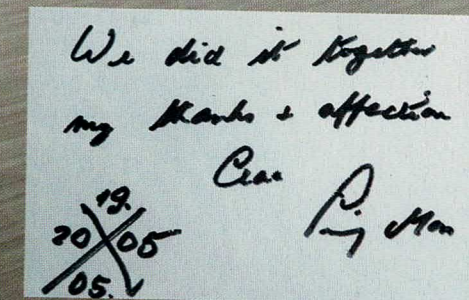 We did it together
my thanks + affection
Ciao
19.
20 05
05.